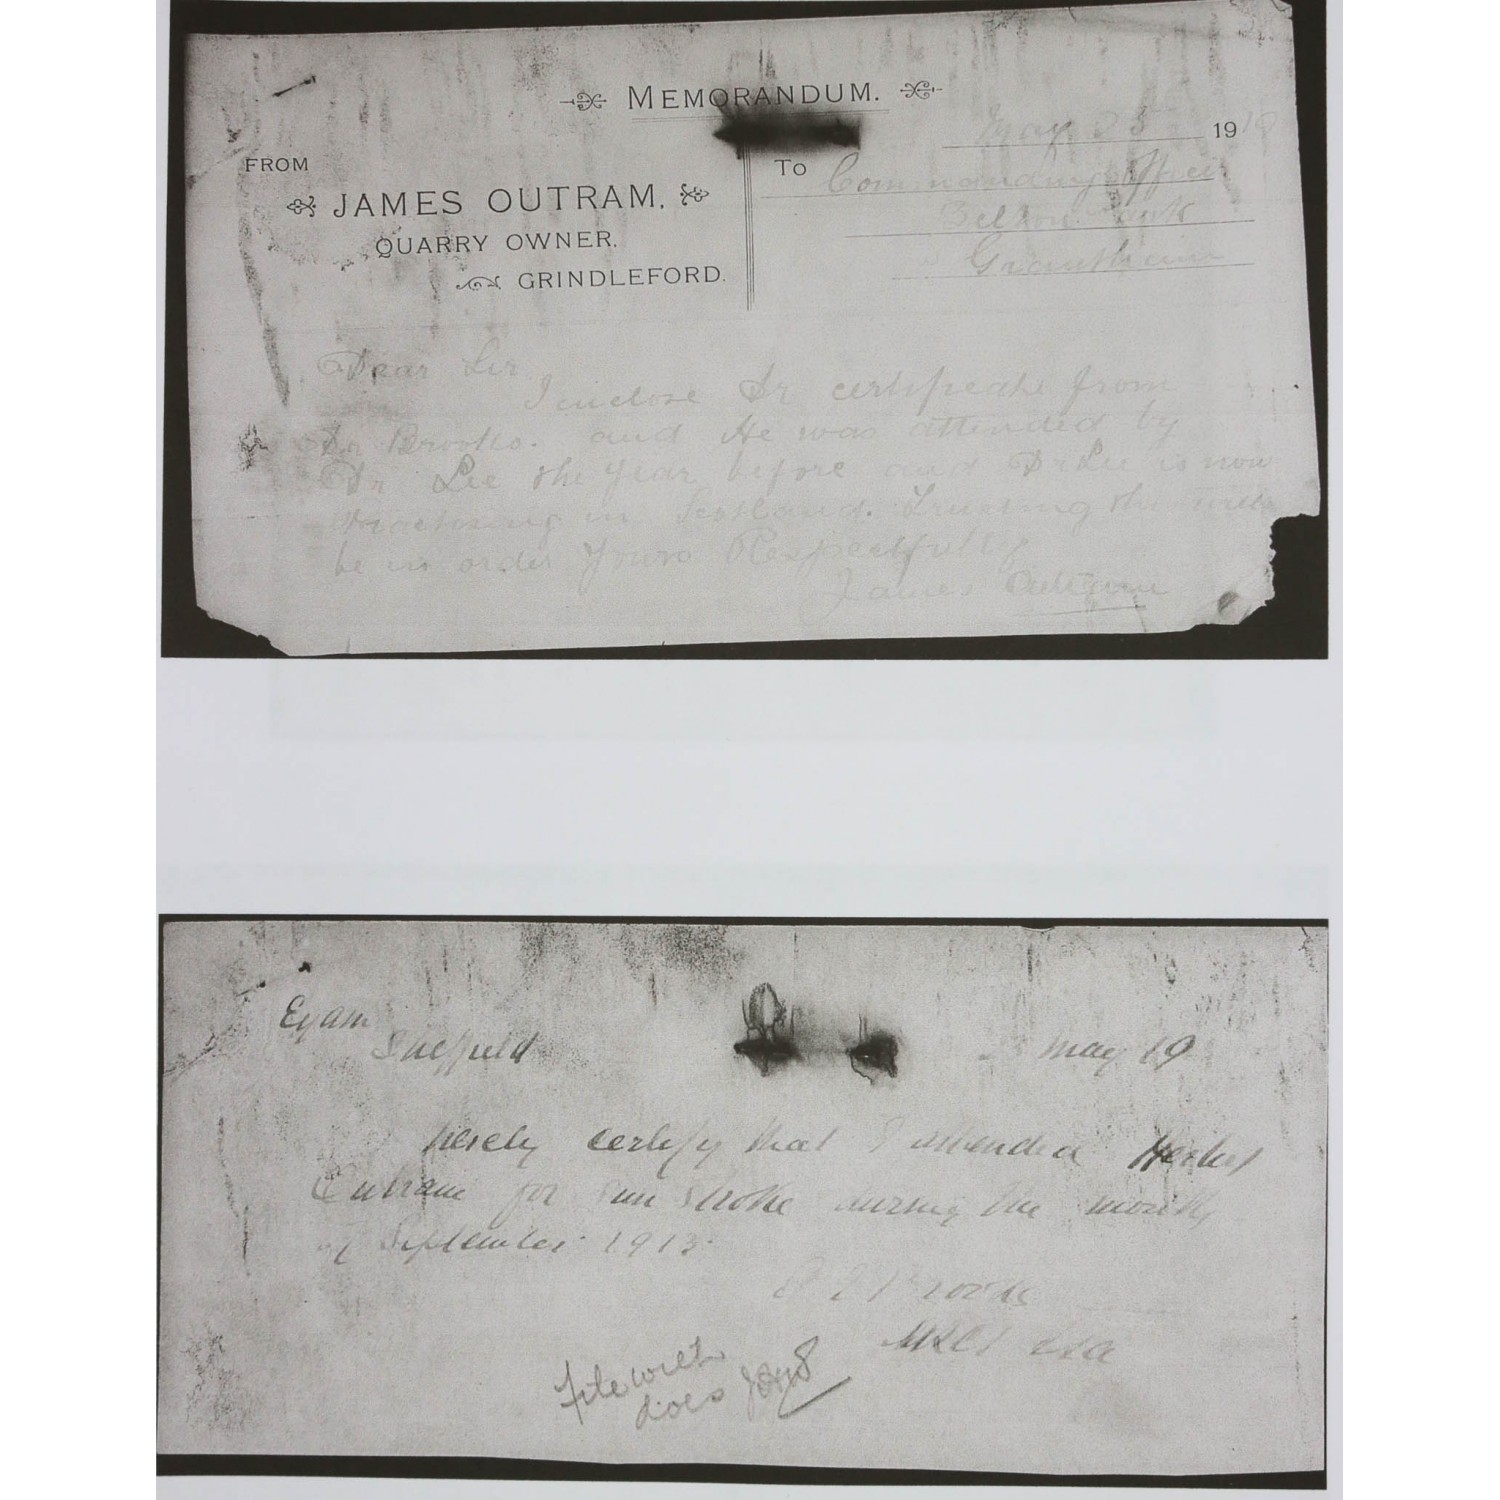 MEMORANDUM.
May 25 19
FROM
JAMES OUTRAM,
QUARRY OWNER.
GRINDLEFORD.
To Commanding Officer
Belton Park
Grantham
Dear Sir
I inclose Dr certificate from
Dr Brooks. and He was attended by
Dr Lee the year before and Dr Lee is now
Practising in Scotland. Trusting this will
be in order Yours Respectfully
James Outram
Eyam
Sheffield
May 19
hereby certify that I attended Herbert
Outram for sun stroke during the month
of September 1913.
Brooks
MRCS LSA
File with
docs